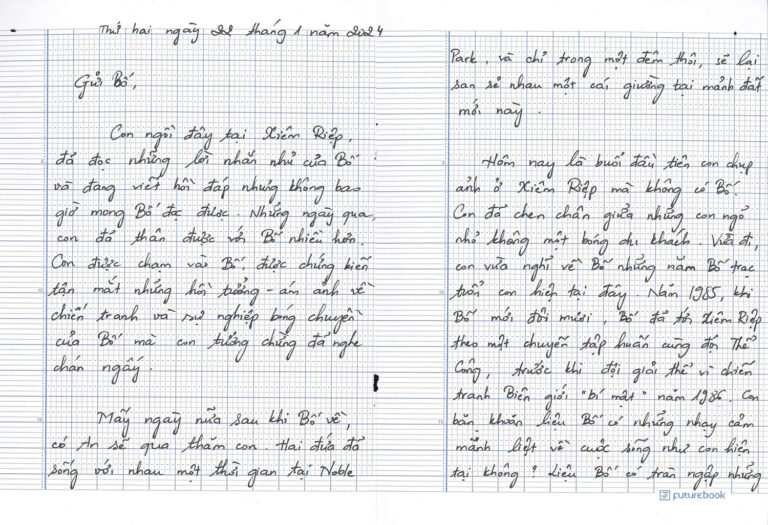 Thứ hai ngày 22 tháng 1 năm 2024
Gửi Bố,
Con ngồi đây tại Xiêm Riệp,
đã đọc những lời nhắn nhủ của Bố
và đang viết hồi đáp nhưng không bao
giờ mong Bố đọc được. Những ngày qua,
con đã thân được với Bố nhiều hơn.
Con được chạm vào Bố, được chứng kiến
tận mắt những hồi tưởng - ám ảnh về
chiến tranh và sự nghiệp bóng chuyền
của Bố mà con tưởng chừng đã nghe
chán ngấy.
Mấy ngày nữa sau khi Bố về,
có An sẽ qua thăm con. Hai đứa đã
sống với nhau một thời gian tại Noble
Park, và chỉ trong một đêm thôi, sẽ lại
san sẻ nhau một cái giường tại mảnh đất
mới này.
Hôm nay là buổi đầu tiên con chụp
ảnh ở Xiêm Riệp mà không có Bố.
Con đã chen chân giữa những con ngõ
nhỏ không một bóng du khách. Vừa đi,
con vừa nghĩ về Bố những năm Bố trạc
tuổi con hiện tại đây. Năm 1985, khi
Bố mới đôi mươi, Bố đã tới Xiêm Riệp
theo một chuyến tập huấn cùng đội Thể
Công, trước khi đội giải thể vì chiến
tranh Biên giới "bí mật" năm 1986. Con
băn khoăn liệu Bố có những nhạy cảm
mãnh liệt về cuộc sống như con hiện
tại không? Liệu Bố có tràn ngập những
futurebook